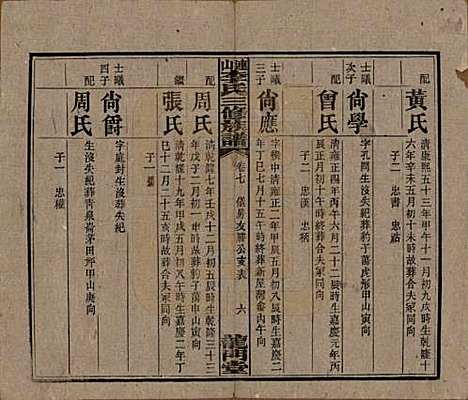 配
黃氏
清康熙五十三年甲午十一月初九戌時生乾隆十
六年辛未五月初十未時故葬合夫冢同向
子二 忠書 忠
士曦
次子
尙學
字孔開生没失紀葬豹子灣虎形甲山庚向
配
曾氏
清雍正四年丙午六月二十四辰時生嘉慶元年丙
辰正月初十午時終葬合夫冢同向
子二 忠漢 忠柄
士曦
三子
尙應
字
中清雍正二年甲辰二月初八辰時生嘉慶二
年丁巳七月十五午時終葬新屋灣
丙午向
族譜
卷七
儀房友
公支表
六
龍門堂
配
周氏
清乾隆七年壬戌十二月初二辰時生乾隆三十三
年
子五月十一巳時故葬豹子灣甲山寅向
繼
張氏
清乾隆十九年甲戌五月初八午時生嘉慶二年丁
巳十二月二十五亥時故葬合夫冢同向
子一
士曦
四子
尙爵
字庭封生没葬失紀
配
周氏
生没失紀葬青泉
茅田
甲山庚向
子一 忠權